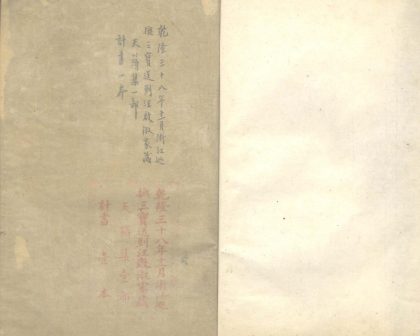 乾隆三十八年十一月浙江巡
撫三寶送到汪啟淑家藏
天籟集一部
計書一本
乾隆三十八年十一月浙江巡
撫三寶送到汪啟淑家藏
天籟集壹部
計書壹本